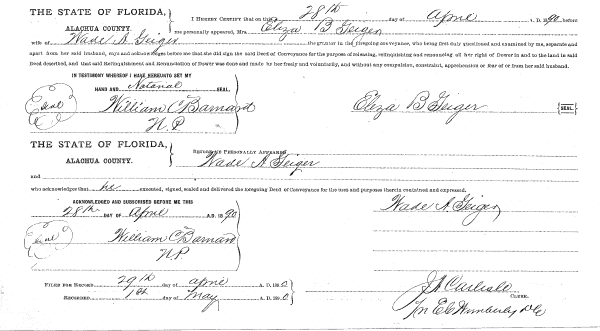 THE STATE OF FLORIDA,
ALACHUA COUNTY.
I HEREBY CERTIFY that on this 28th day of April A. D. 1890, before
me personally appeared, Mrs. Eliza B Geiger
wife of Wade A. Geiger, the grantor in the foregoing conveyance, who being first duly questioned and examined by me, separate and
apart from her said husband, says and acknowledges before me that she did sign the said Deed of Conveyance for the purpose of releasing, relinquishing and renouncing all her right of Dower in and to the land in said
Deed described, and that said Relinquishment and Renunciation of Dower was done and made by her freely and voluntarily, and without any compulsion, constraint, apprehension or fear of or from her said husband.
IN TESTIMONY WHEREOF I HAVE HEREUNTO SET MY
HAND AND Notarial SEAL.
Seal
William C Barnard
N.P.
Eliza B Geiger
SEAL
THE STATE OF FLORIDA,
ALACHUA COUNTY.
BEFORE ME PERSONALLY APPEARED
Wade A Geiger
and
who acknowledges that he executed, signed, sealed and delivered the foregoing Deed of Conveyance for the uses and purpose therein contained and expressed.
ACKNOWLEDGED AND SUBSCRIBED BEFORE ME THIS
28th DAY OF April A. D. 1890
Seal
William C Barnard
N.P.
Wade A. Geiger
FILED FOR RECORD 29th day of April A. D. 1890
RECORDED 1st day of May A. D. 1890
J A Carlisle
CLERK.
Per E C Wimberly D.C.